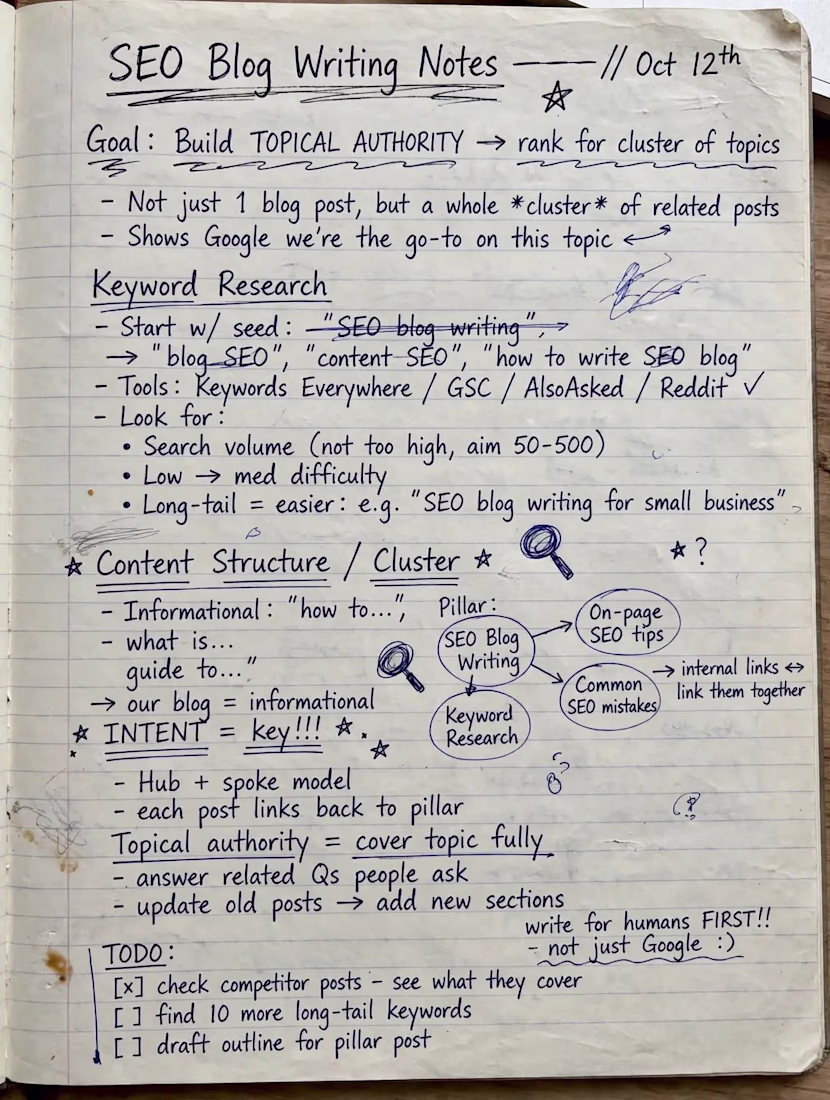 SEO Blog Writing Notes —— // Oct 12th
Goal: Build TOPICAL AUTHORITY → rank for cluster of topics
- Not just 1 blog post, but a whole *cluster* of related posts
- Shows Google we're the go-to on this topic
Keyword Research
- Start w/ seed: "SEO blog writing",
→ "blog SEO", "content SEO", "how to write SEO blog"
- Tools: Keywords Everywhere / GSC / AlsoAsked / Reddit ✓
- Look for:
• Search volume (not too high, aim 50-500)
• Low → med difficulty
• Long-tail = easier: e.g. "SEO blog writing for small business"
☆ Content Structure / Cluster ☆
☆ ?
- Informational: "how to...",
- what is...
guide to..."
→ our blog = informational
Pillar:
SEO Blog
Writing
On-page
SEO tips
Common
SEO mistakes
→ internal links ↔
link them together
Keyword
Research
☆ INTENT = key!!! ☆
- Hub + spoke model
- each post links back to pillar
Topical authority = cover topic fully
- answer related Qs people ask
- update old posts → add new sections
write for humans FIRST!!
- not just Google :)
TODO:
[x] check competitor posts - see what they cover
[ ] find 10 more long-tail keywords
[ ] draft outline for pillar post